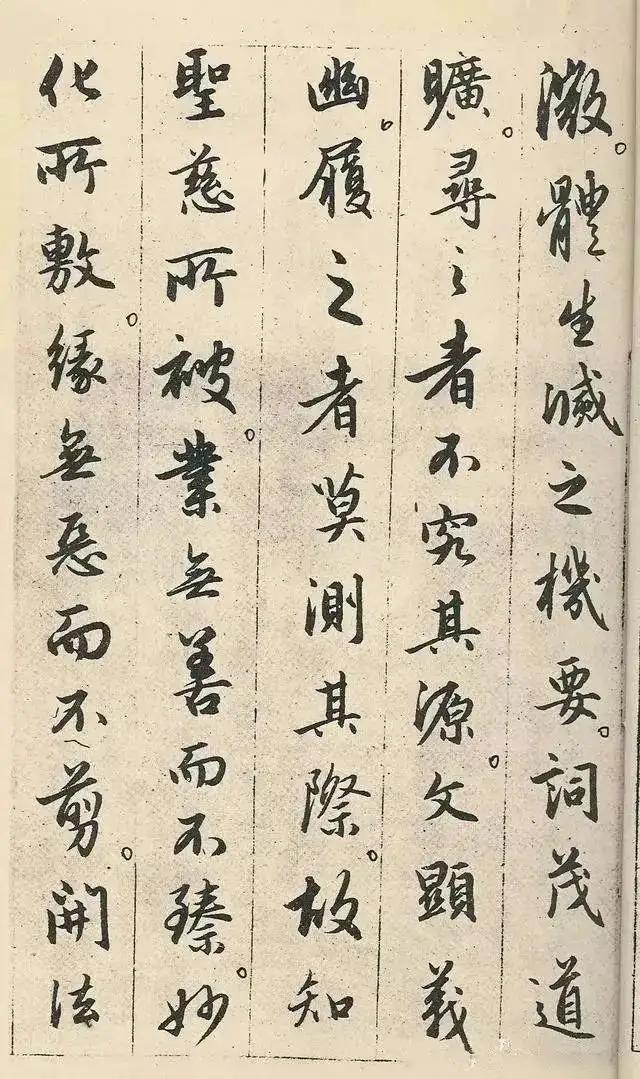 微。體生滅之機要。詞茂道
曠。尋之者不究其源。文顯義
幽。履之者莫測其際。故知
聖慈所被。業無善而不臻。妙
化所敷。緣無惡而不剪。開法